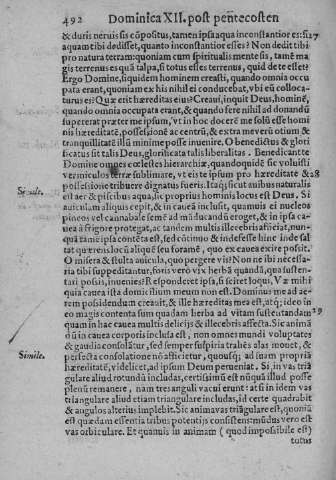 492 Dominica XII. post pentecosten
& duris neruis sis cōpositus, tamen ipsa aqua inconstantior es: Si 27
aquam tibi dedisset, quanto inconstantior esses? Non dedit tibi
pro natura terram: quoniam cum spiritualis mente sis, tamē ma
gis terrenus es quā talpa, si totus esses terrenus, quid de te esset?
Ergo Domine, siquidem hominem creasti, quando omnia occu
pata erant, quoniam ex his nihil ei conducebat, vbi eū colloca-
turus es? Quæ erit hæreditas eius? Creaui, inquit Deus, hominē,
quando omnia occupata erant, & quando fere nihil ad donandū
supererat præter me ipsum, vt in hoc docerē me solū esse homi
nis hæreditatē, possessionē ac centrū, & extra me verū otium &
tranquillitatē illū minime posse inuenire. O benedictus & glori
ficatus sit talis Deus, glorificata talis liberalitas. Benedicant te
Domine omnes cœlestes hierarchiæ, quandoquidē sic voluisti
vermiculos terræ sublimare, vt eis te ipsum pro hæreditate & 28
possessione tribuere dignatus fueris. Itaq; sicut auibus naturalis
Simile. est aer & piscibus aqua, sic proprius hominis locus est Deus. Si
auiculam aliquis cepit, & in cauea inclusit, quamuis ei nucleos
pineos vel cannabis semē ad māducandū eroget, & in ipsa ca-
uea à frigore protegat, ac tandem multis illecebris afficiat, nun-
quā tamē ipsa cōtēta est, sed cōtinuo & indefesse hinc inde sal
tat quærens locū aliquē seu foramē, quo ex cauea exire possit.
O misera & stulta auicula, quo pergere vis? Non ne ibi necessa-
ria tibi suppeditantur, foris vero vix herbā quandā, qua susten-
tari possis, inuenies? Responderet ipsa, si sciret loqui. Væ mihi
quia cauea ista domicilium meum non est. Dominus me ad ae-
rem possidendum creauit, & ille hæreditas mea est, atq; ideo in
eo magis contenta sum quadam herba ad vitam sustentandam 29
quam in hac cauea multis delicijs & illecebris affecta. Sic animā
dū in cauea corporis inclusa est, non omnes mundi voluptates
& gaudia consolātur, sed semper suspiria trahēs alas mouet, &
Simile. perfecta consolatione nō afficietur, quousq; ad suam propriā
hæreditatē, videlicet, ad ipsum Deum perueniat. Si, in vas triā
gulare aliud rotundū includas, certissimū est nūquā illud posse
plenū remanere, nam tres anguli vacui erunt: at si in idem vas
triangulare aliud etiam triangulare includas, id certe quadrabit
& angulos alterius implebit. Sic anima vas triāgulare est, quoniā
est quædam essentia tribus potentijs consistens: mūdus vero est
vas orbiculare. Et quamuis in animam ( quod impossibile est )
totus